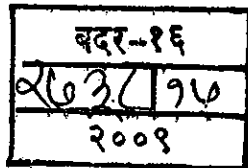 बदर-१६
२७३८ १७
२००९